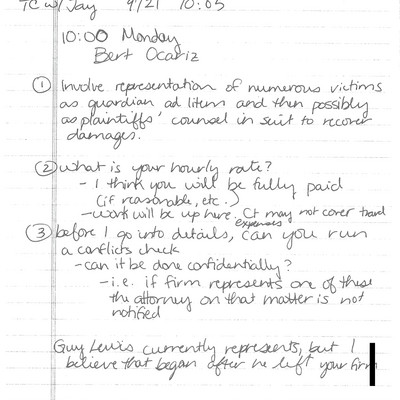 TC w/ Jay 9/21 10:05
10:00 Monday
Bert Ocariz
① Involve representation of numerous victims
as guardian ad litem and then possibly
as plaintiffs' counsel in suit to recover
damages.
② What is your hourly rate?
- I think you will be fully paid
(if reasonable, etc.)
- work will be up here. Ct may not cover travel
expenses
③ before I go into details, can you run
a conflicts check
- can it be done confidentially?
- i.e. if firm represents one of these
the attorney on that matter is not
notified
Guy Lewis currently represents, but I
believe that began after he left your firm